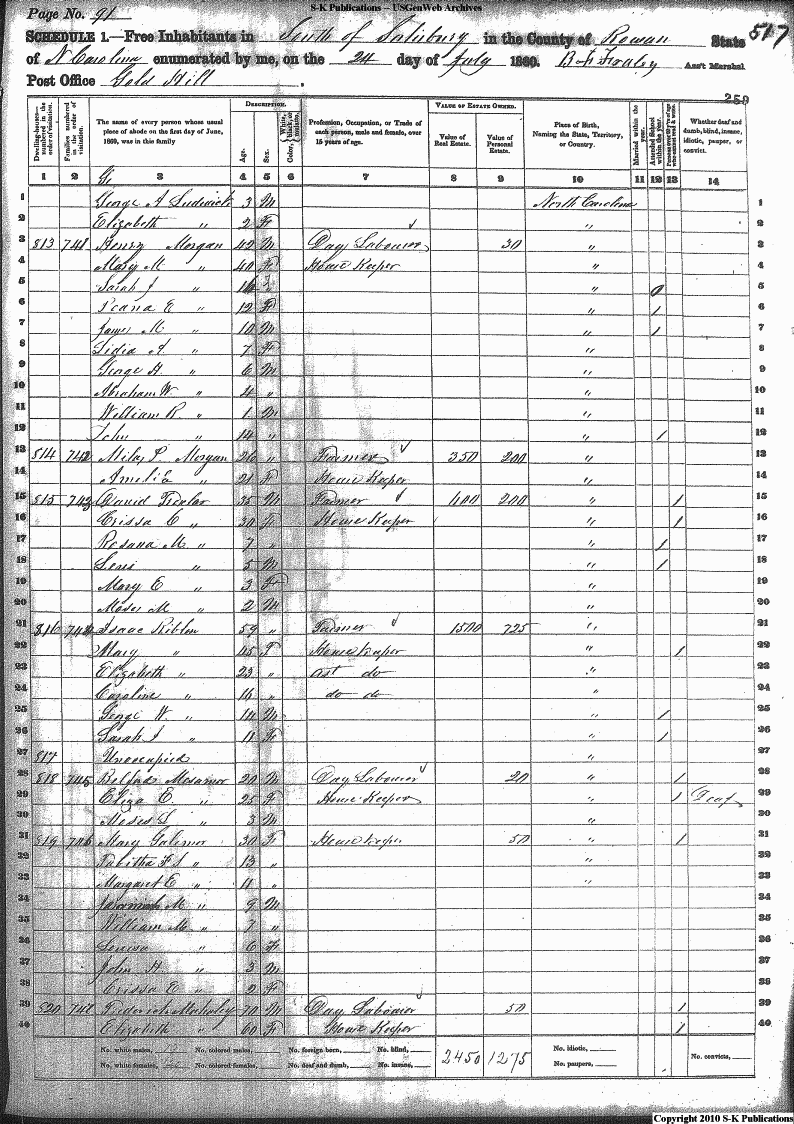 S-K Publications – USGenWeb Archives
Page No. 91
SCHEDULE 1.—Free Inhabitants in South of Salisbury in the County of Rowan State 517
of N Carolina enumerated by me, on the 24 day of July 1860. Ass't Marshal
Post Office Gold Hill
259
Dwelling-houses—numbered in the order of visitation.
Families numbered in the order of visitation.
The name of every person whose usual place of abode on the first day of June, 1860, was in this family
DESCRIPTION.
Age.
Sex.
Color, White, black, or mulatto.
Profession, Occupation, or Trade of each person, male and female, over 15 years of age.
VALUE OF ESTATE OWNED.
Value of Real Estate.
Value of Personal Estate.
Place of Birth, Naming the State, Territory, or Country.
Married within the year.
Attended School within the year.
Whether deaf and dumb, blind, insane, idiotic, pauper, or convict.
1 2 3 4 5 6 7 8 9 10 11 12 13 14
1 George A 3 M North Carolina 1
2 Elizabeth " 2 F " 2
3 813 741 Henry Morgan 42 M Day Labourer 30 " 3
4 Mary M " 40 F House Keeper " 4
5 Sarah J " 16 " / 5
6 E " 12 F " / 6
7 James M " 10 M " / 7
8 Lidia A. " 7 F " 8
9 George H. " 6 M " 9
10 Abraham W. " 4 " " 10
11 William R " 1 M " 11
12 John " 14 " " / 12
13 814 742 Miles P. Morgan 26 " Farmer 350 200 " 13
14 Amelia " 21 F House Keeper " 14
15 815 743 David 35 M Farmer 400 200 " / 15
16 Crissa C " 30 F House Keeper " / 16
17 Rosana M " 7 " " / 17
18 Levi " 5 M " / 18
19 Mary E " 3 F " 19
20 Moses M " 2 M " 20
21 816 744 Isaac 59 " Farmer 1500 725 " 21
22 Mary " 45 F House Keeper " / 22
23 Elizabeth " 23 " ast do " 23
24 Caroline " 16 " do do " 24
25 George W. " 14 M " / 25
26 Sarah J " 11 F " / 26
27 817 Unoccupied " 27
28 818 745 20 M Day Labourer 20 " / 28
29 Eliza E. " 25 F House Keeper " / Deaf 29
30 Moses L " 3 M " 30
31 819 746 Mary 30 F House Keeper 50 / 31
32 Tabitha " 13 " " 32
33 Margaret E " 11 " " 33
34 M " 9 M 34
35 William M " 7 " 35
36 " 6 F 36
37 John H " 3 M 37
38 Crissa E " 2 F 38
39 820 747 Frederick 70 M Day Labourer 50 / 39
40 Elizabeth " 60 F House Keeper / 40
No. white males, No. colored males, No. foreign born, No. blind, 2450 1275 No. idiotic, No. convicts,
No. white females, No. colored females, No. deaf and dumb, No. insane, No. paupers,
Copyright 2010 S-K Publications